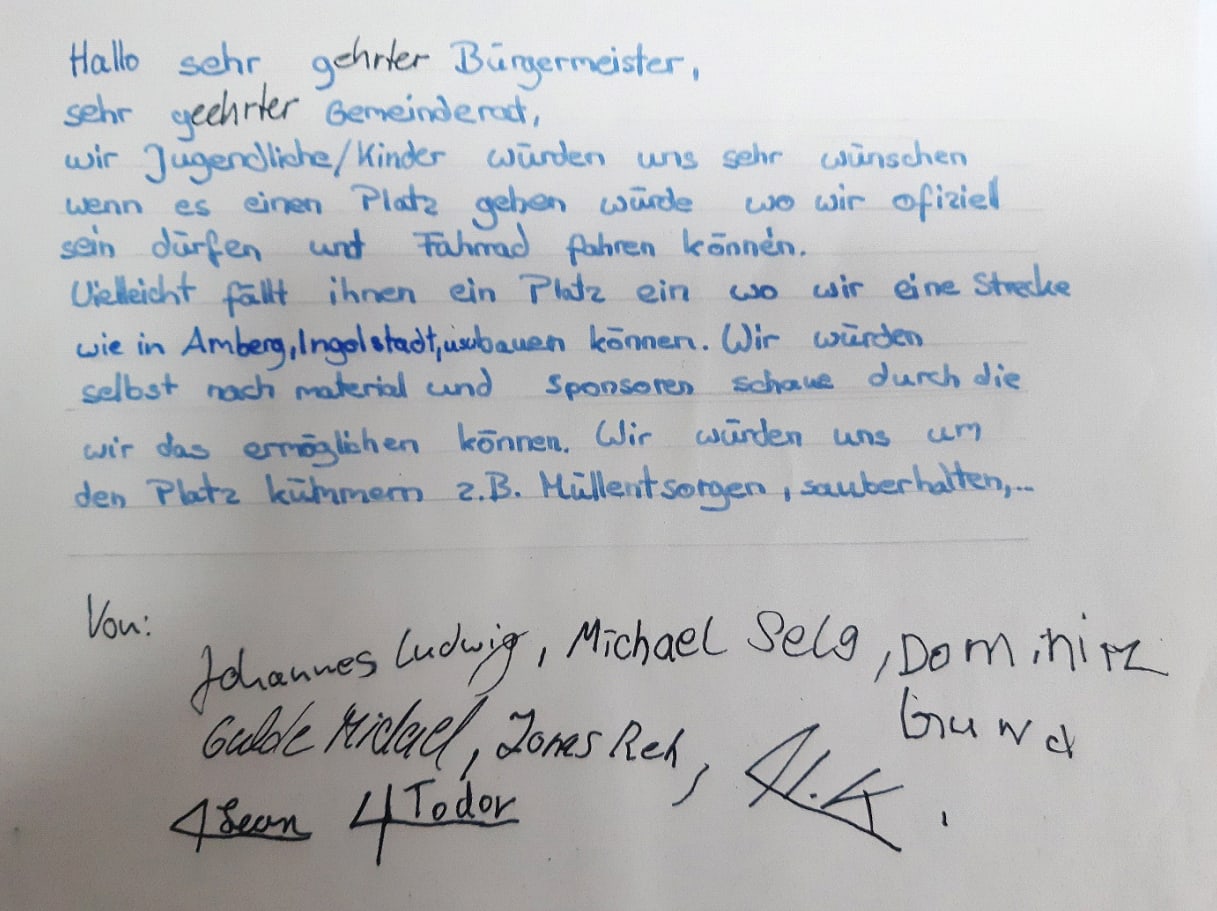 Hallo sehr gehrter Bürgermeister,
sehr geehrter Gemeinderat,
wir Jugendliche/Kinder würden uns sehr wünschen
wenn es einen Platz geben würde wo wir ofiziell
sein dürfen und Fahrrad fahren können.
Vielleicht fällt ihnen ein Platz ein wo wir eine Strecke
wie in Amberg, Ingolstadt, bauen können. Wir würden
selbst nach material und sponsoren schaue durch die
wir das ermöglichen können. Wir würden uns um
den Platz kümmern z.B. Müllentsorgen, sauberhalten,...
Von:
Johannes Ludwig, Michael Selg, Dominik
Gulde Michael, Jonas Reh,
Sean Todor